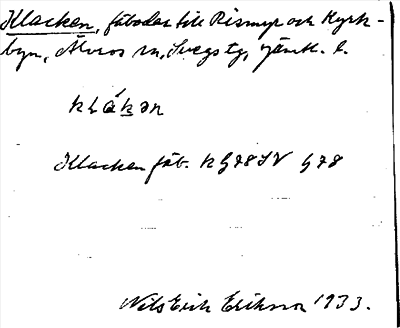 Klacken, fäbodar till Rismyr och Kyrk-
byn, Älvros sn, Svegs tg, Jämtl. l.
klákən
Klacken fäb. kG78SV G78
Nils Erik Eriksson 1933.